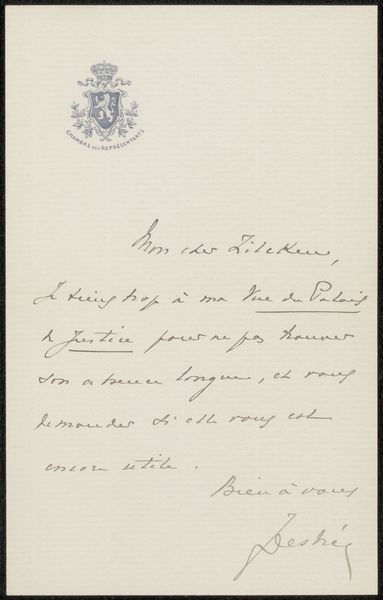 CHAMBRE DES REPRÉSENTANTS
Mon cher Zilcken,
Je tiens trop à ma Vue du Palais
de Justice pour ne pas trouver
son absence longue, et vous
demander si elle vous est
encore utile.
Bien à vous
JDestrée